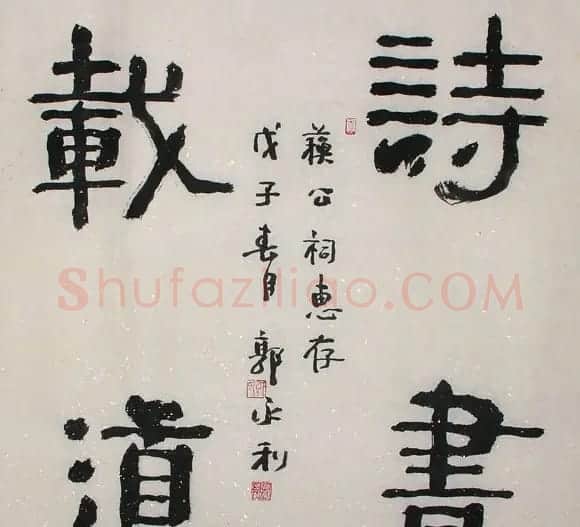 詩書
載道
蘇公祠惠存
戊子春月郭永利
Shufaziliao.COM